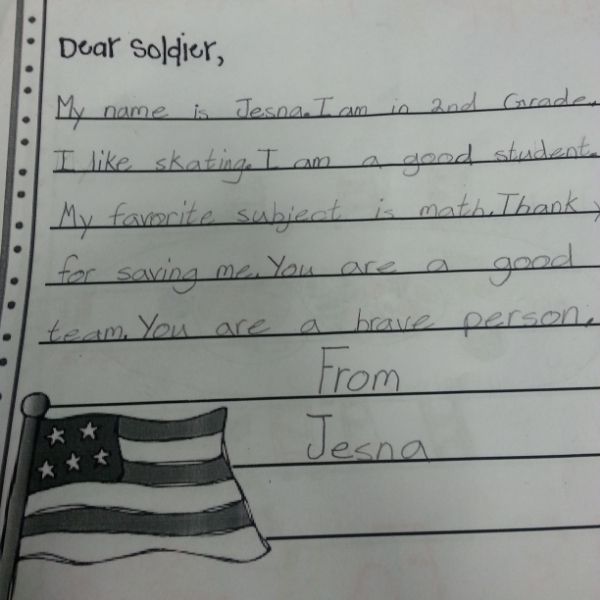 Dear Soldier,
My name is Jesna. I am in 2nd Grade.
I like skating. I am a good student.
My favorite subject is math. Thank
for saving me. You are a good
team. You are a brave person.
From
Jesna